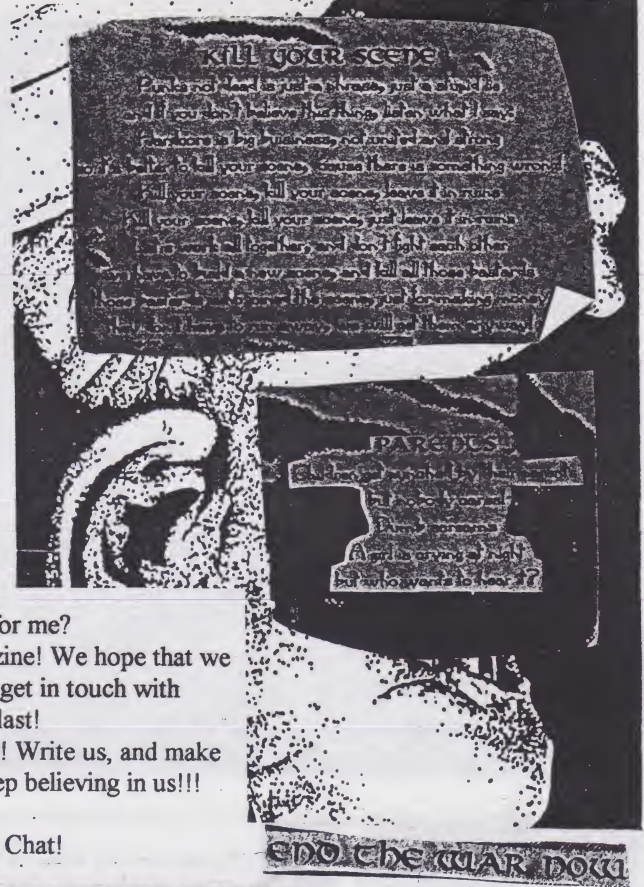 KILL YOUR SCENE
Punks not dead is just a phrase, just a stupid lie
and if you don't believe this thing, listen what I say:
Hardcore is big business, not united and strong
it's better to kill your scene, 'cause there is something wrong!
Kill your scene, kill your scene, leave it in ruins
Kill your scene, kill your scene, just leave it in ruins
work all together, and don't fight each other
we have to build a new scene, and kill all those bastards
those bastards, the scene, just for making money
they don't have to run away, we will get them anyway!
PARENTS
Children get by their parents
but nobody
Dumb screams
A girl is crying at night
but who wants to hear it?
for me?
zine! We hope that we
get in touch with
last!
! Write us, and make
ep believing in us!!!
Chat!
END THE WAR NOW